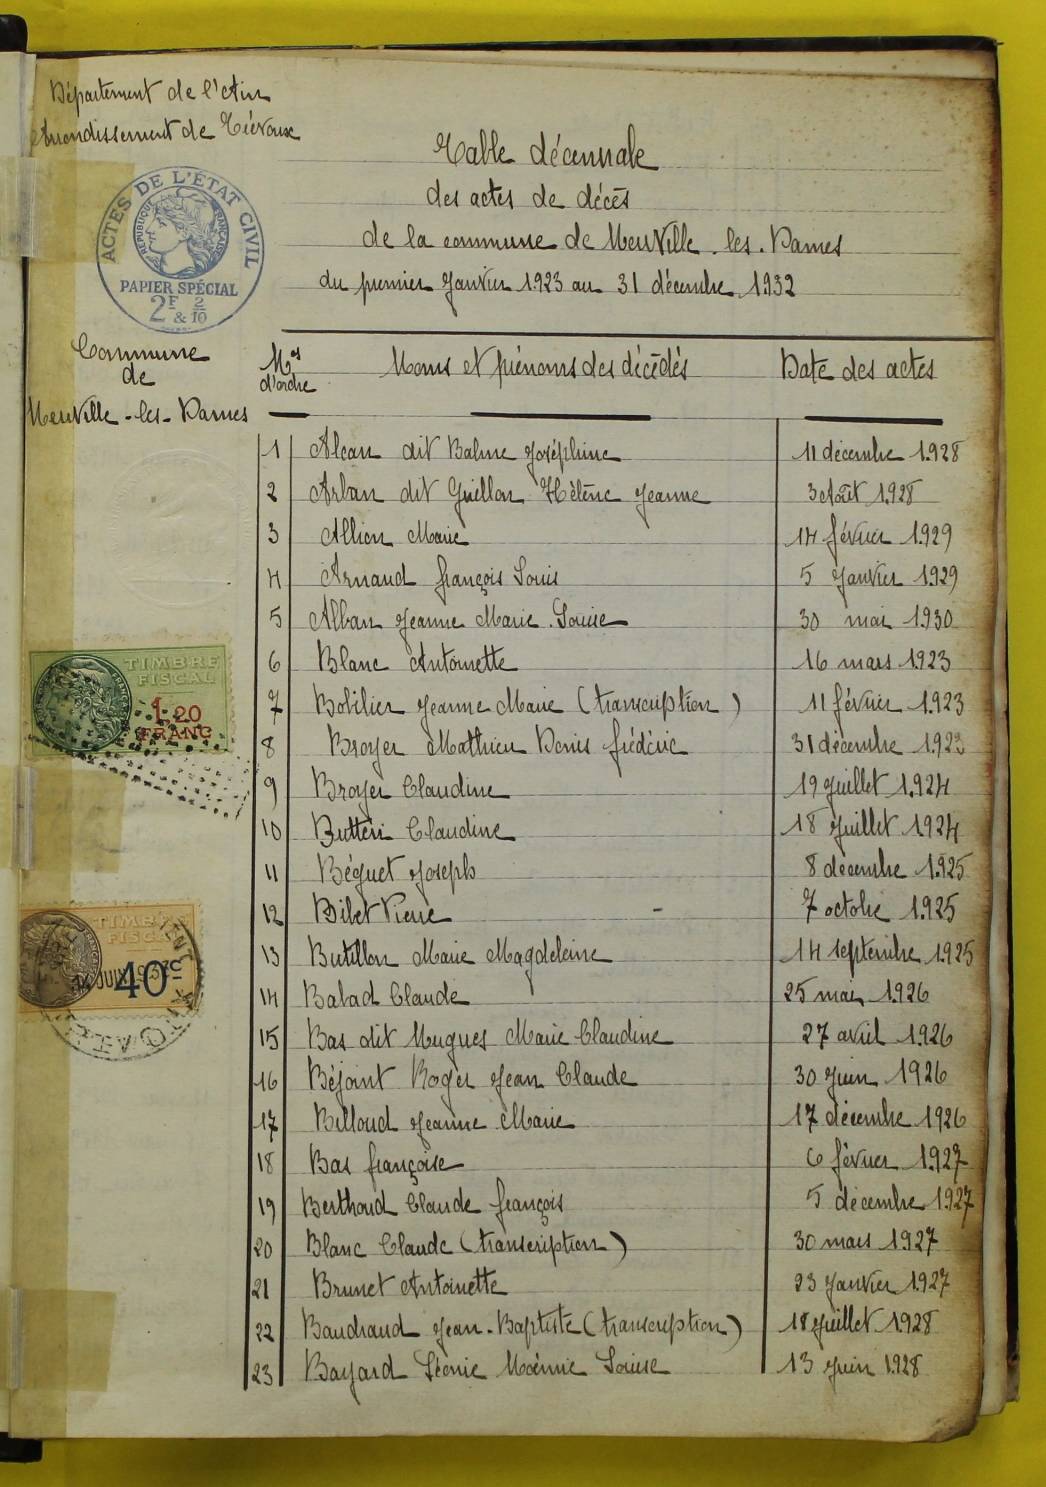 Département de l'Ain
Arrondissement de Trévoux
ACTES DE L'ÉTAT CIVIL
RÉPUBLIQUE FRANÇAISE
PAPIER SPÉCIAL
2F 2/10
& 10
Table décennale
des actes de décès
de la commune de Neuville-les-Dames
du premier Janvier 1923 au 31 décembre 1932
Commune
de
Neuville-les-Dames
Nos d'ordre Noms et prénoms des décédés Date des actes
1 Alcan dit Balme Joséphine 11 décembre 1928
2 Arban dit Guillon Hélène Jeanne 3 Août 1928
3 Allion Marie 14 février 1929
4 Arnaud françois Louis 5 Janvier 1929
5 Alban Jeanne Marie Louise 30 mai 1930
6 Blanc Antoinette 16 mars 1923
7 Bobilier Jeanne Marie (transcription) 11 février 1923
8 Broyer Mathieu Denis frédéric 31 décembre 1923
9 Broyer Claudine 19 Juillet 1924
10 Butteri Claudine 18 Juillet 1924
11 Béguet Joseph 8 décembre 1925
12 Bibet Pierre 7 octobre 1925
13 Butillon Marie Magdeleine 14 septembre 1925
14 Balad Claude 25 mai 1926
15 Bas dit Mugues Marie Claudine 27 avril 1926
16 Béjoint Roger Jean Claude 30 Juin 1926
17 Billoud Jeanne Marie 17 décembre 1926
18 Bas françoise 6 février 1927
19 Berthoud Claude françois 5 décembre 1927
20 Blanc Claude (transcription) 30 mars 1927
21 Brunet Antoinette 23 Janvier 1927
22 Baudraud Jean-Baptiste (transcription) 18 Juillet 1928
23 Bayard Léonie Noémie Louise 13 Juin 1928
TIMBRE
FISCAL
1.20
FRANC
TIMBRE
FISCAL
40c